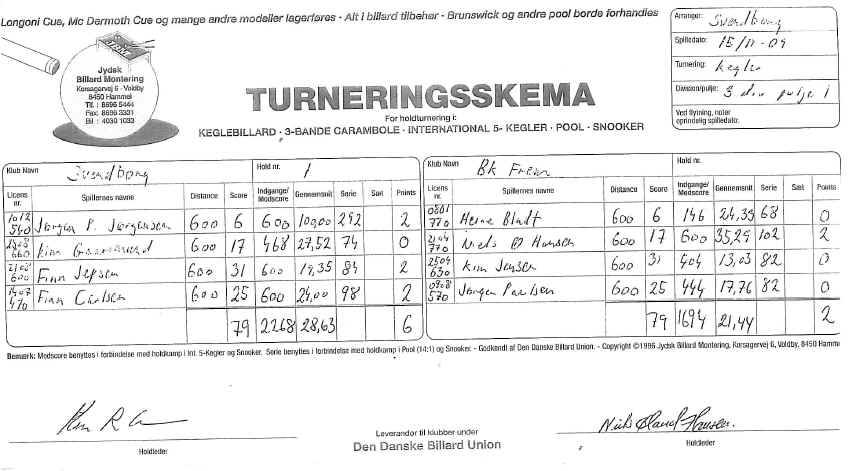 Longoni Cue, Mc Dermoth Cue og mange andre modeller lagerføres - Alt i billard tilbehør - Brunswick og andre pool borde forhandles
JYDSK
Jydsk
Billard Montering
Korsagervej 6 - Voldby
8450 Hammel
Tlf. : 8696 5444
Fax: 8696 3331
Bil : 4030 1033
TURNERINGSSKEMA
For holdturnering i:
KEGLEBILLARD - 3-BANDE CARAMBOLE - INTERNATIONAL 5- KEGLER - POOL - SNOOKER
Arrangør: Svendborg
Spilledato: 15/11-09
Turnering: Kegler
Division/pulje: 3 div pulje 1
Ved flytning, noter
oprindelig spilledato:
Klub Navn Svendborg Hold nr. 1
Licens nr. Spillernes navne Distance Score Indgange/Modscore Gennemsnit Serie Sæt Points
1012 540 Jørgen P. Jørgensen 600 6 600 100,00 292 2
660 Kim 600 17 468 27,52 74 0
600 Finn Jepsen 600 31 600 19,35 84 2
470 Finn Carlsen 600 25 600 24,00 98 2
79 2268 28,63 6
Klub Navn BK Frem Hold nr.
Licens nr. Spillernes navne Distance Score Indgange/Modscore Gennemsnit Serie Sæt Points
0801 770 Heine Bladt 600 6 146 24,35 68 0
770 Niels Ø Hansen 600 17 600 35,29 102 2
2504 630 Kim Jensen 600 31 404 13,03 82 0
570 Jørgen Paulsen 600 25 444 17,76 82 0
79 1694 21,44 2
Bemærk: Modscore benyttes i forbindelse med holdkamp i Int. 5-Kegler og Snooker. Serie benyttes i forbindelse med holdkamp i Pool (14:1) og Snooker. - Godkendt af Den Danske Billard Union. - Copyright ©1996 Jydsk Billard Montering, Korsagervej 6, Voldby, 8450 Hamme
Niels Øland Hansen
Holdleder
Leverandør til klubber under
Den Danske Billard Union
Holdleder